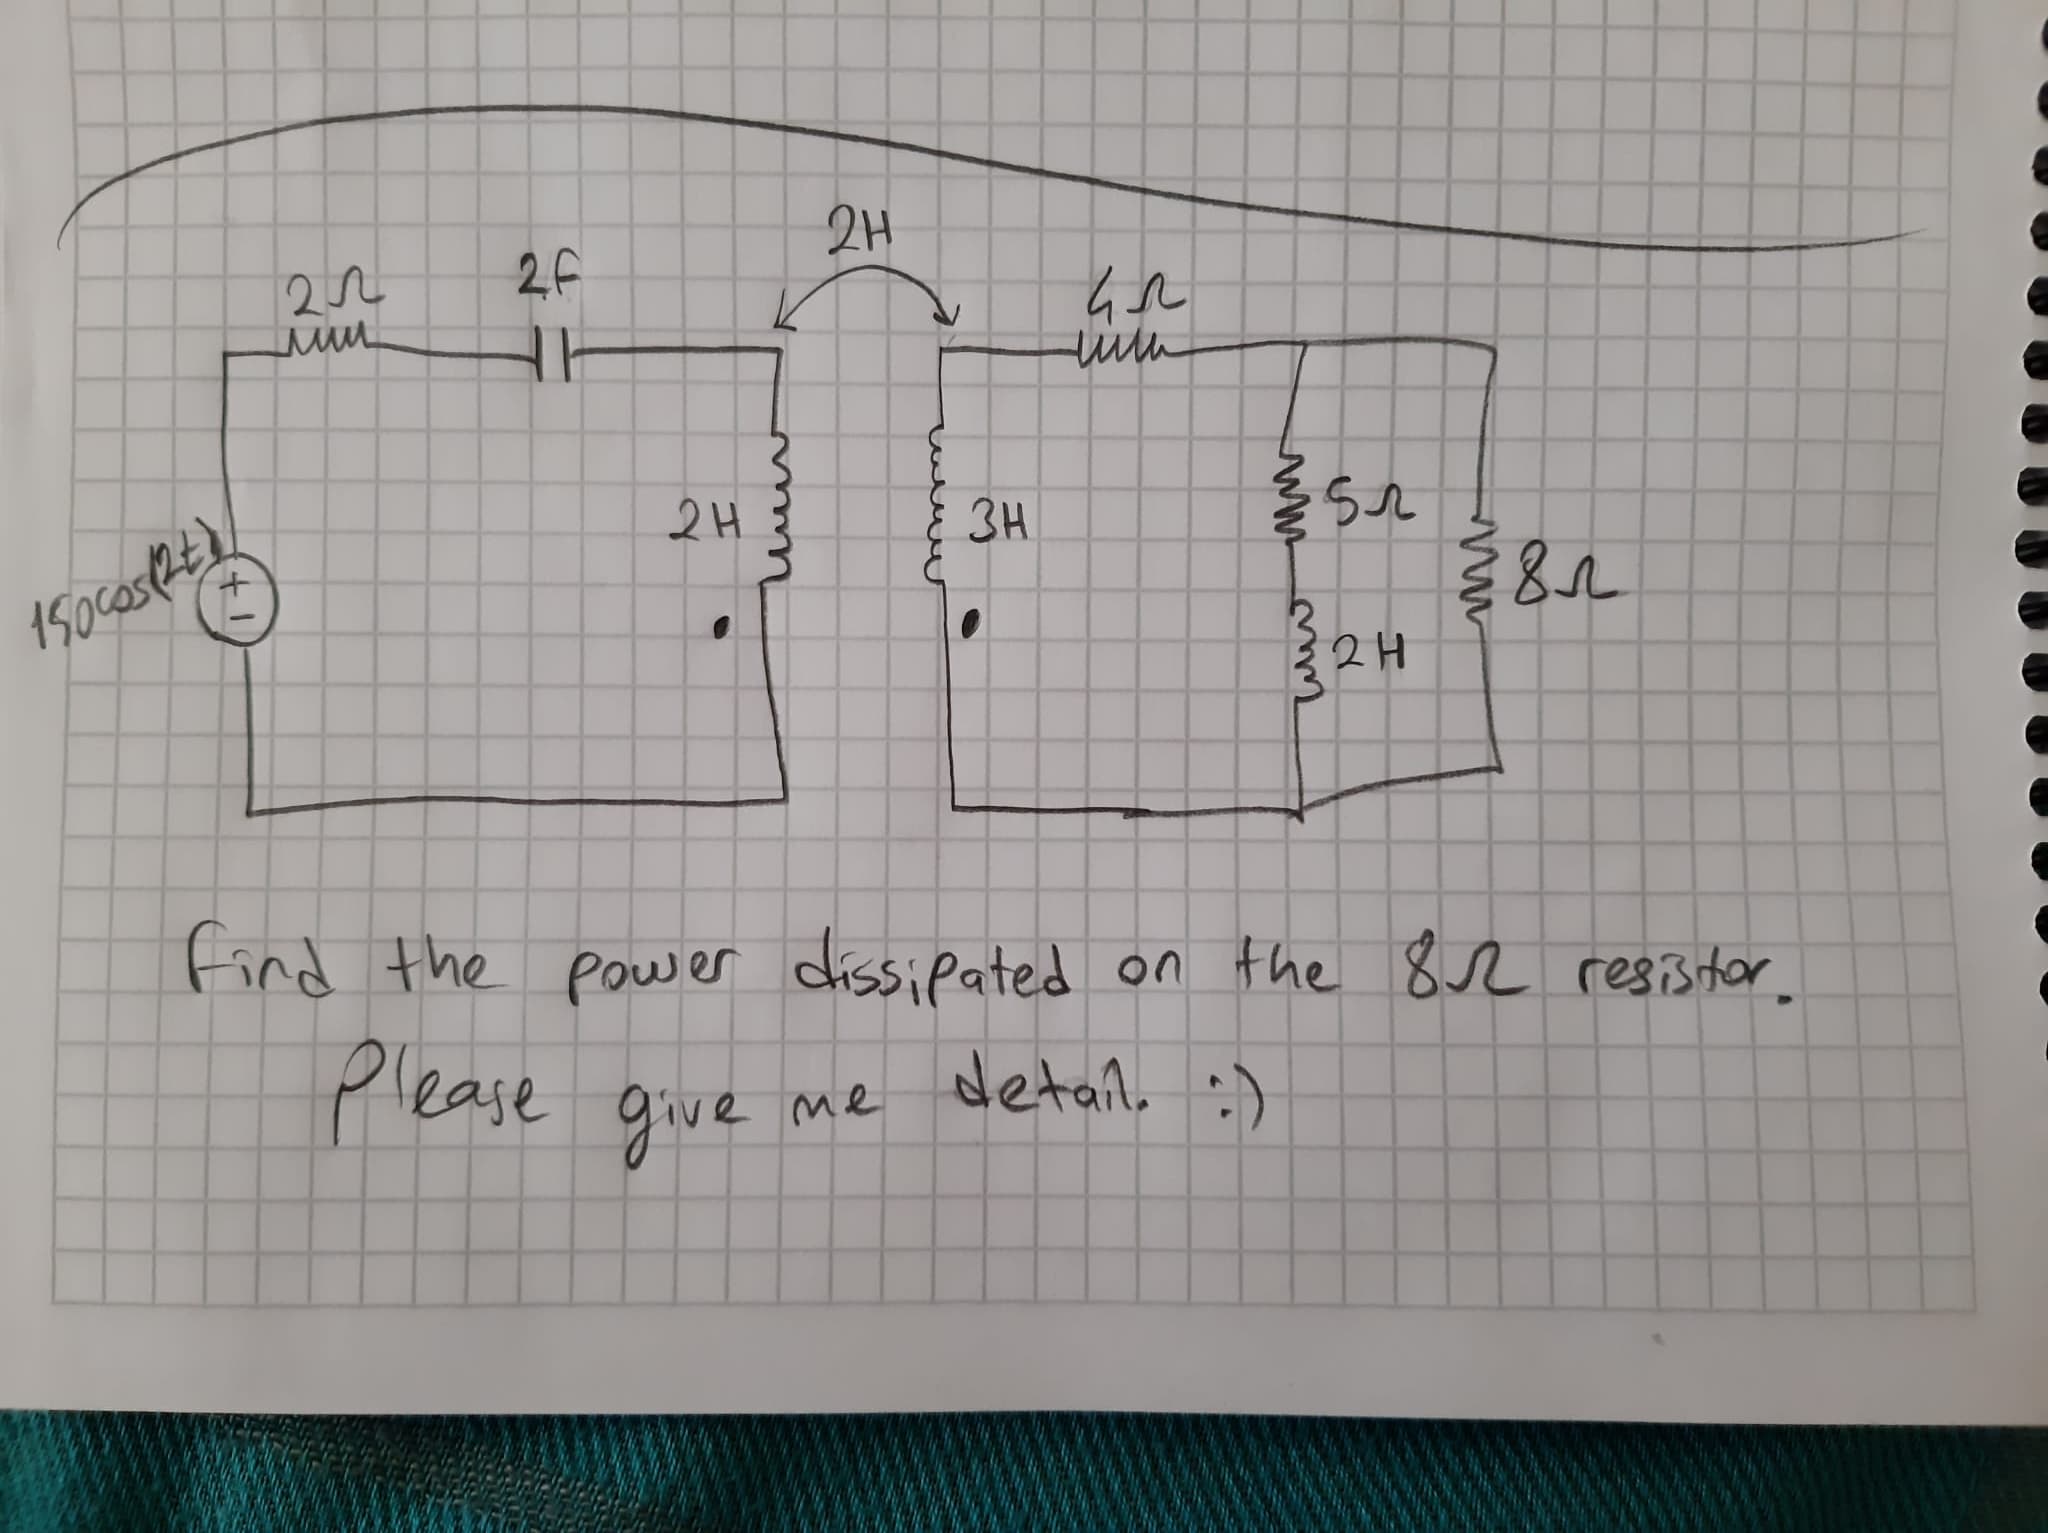 2H
2Ω
2F
4Ω
150cos(2t)
+
−
2H
3H
5Ω
2H
8Ω
find the power dissipated on the 8Ω resistor.
Please give me detail. :)